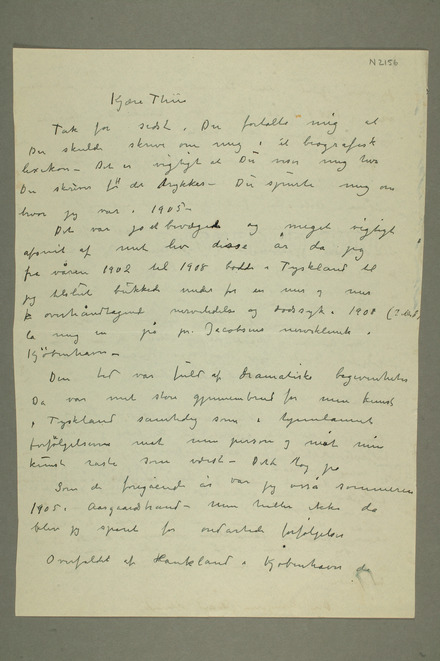 N 2156
Kjære Thiis
Tak for sidst. Du fortalte mig at
Du skulde skrive om mig i et biografisk
lexikon – Det er vigtigt at Du viser mig hva
Du skriver før det trykkes – Du spurte mig om
hvor jeg var i 1905 –
Det var godt beværget og meget vigtigt
afsnit af mit liv disse år da jeg
fra våren 1902 til 1908 bodde i Tyskland til
jeg tilslut bukkede under for en mer og mer
overhåndtagende nervelidelse og i 1908
la mig in på pr. Jacobsens nerveklinik i
Kjøbenhavn –
Den tid var fuld af dramatiske begivenheter
Da var mit store gjennembrud for min kunst
i Tyskland samtidig som i
forfølgelserne mot min person og mot min
kunst raste som værst – Dette tog på
Som de foregående år var jeg også sommeren
1905 i Aasgaardstrand – men heller ikke da
blev jeg sparet for ondartede forfølgelser
Overfaldet af Haukland i Kjøbenhavn da